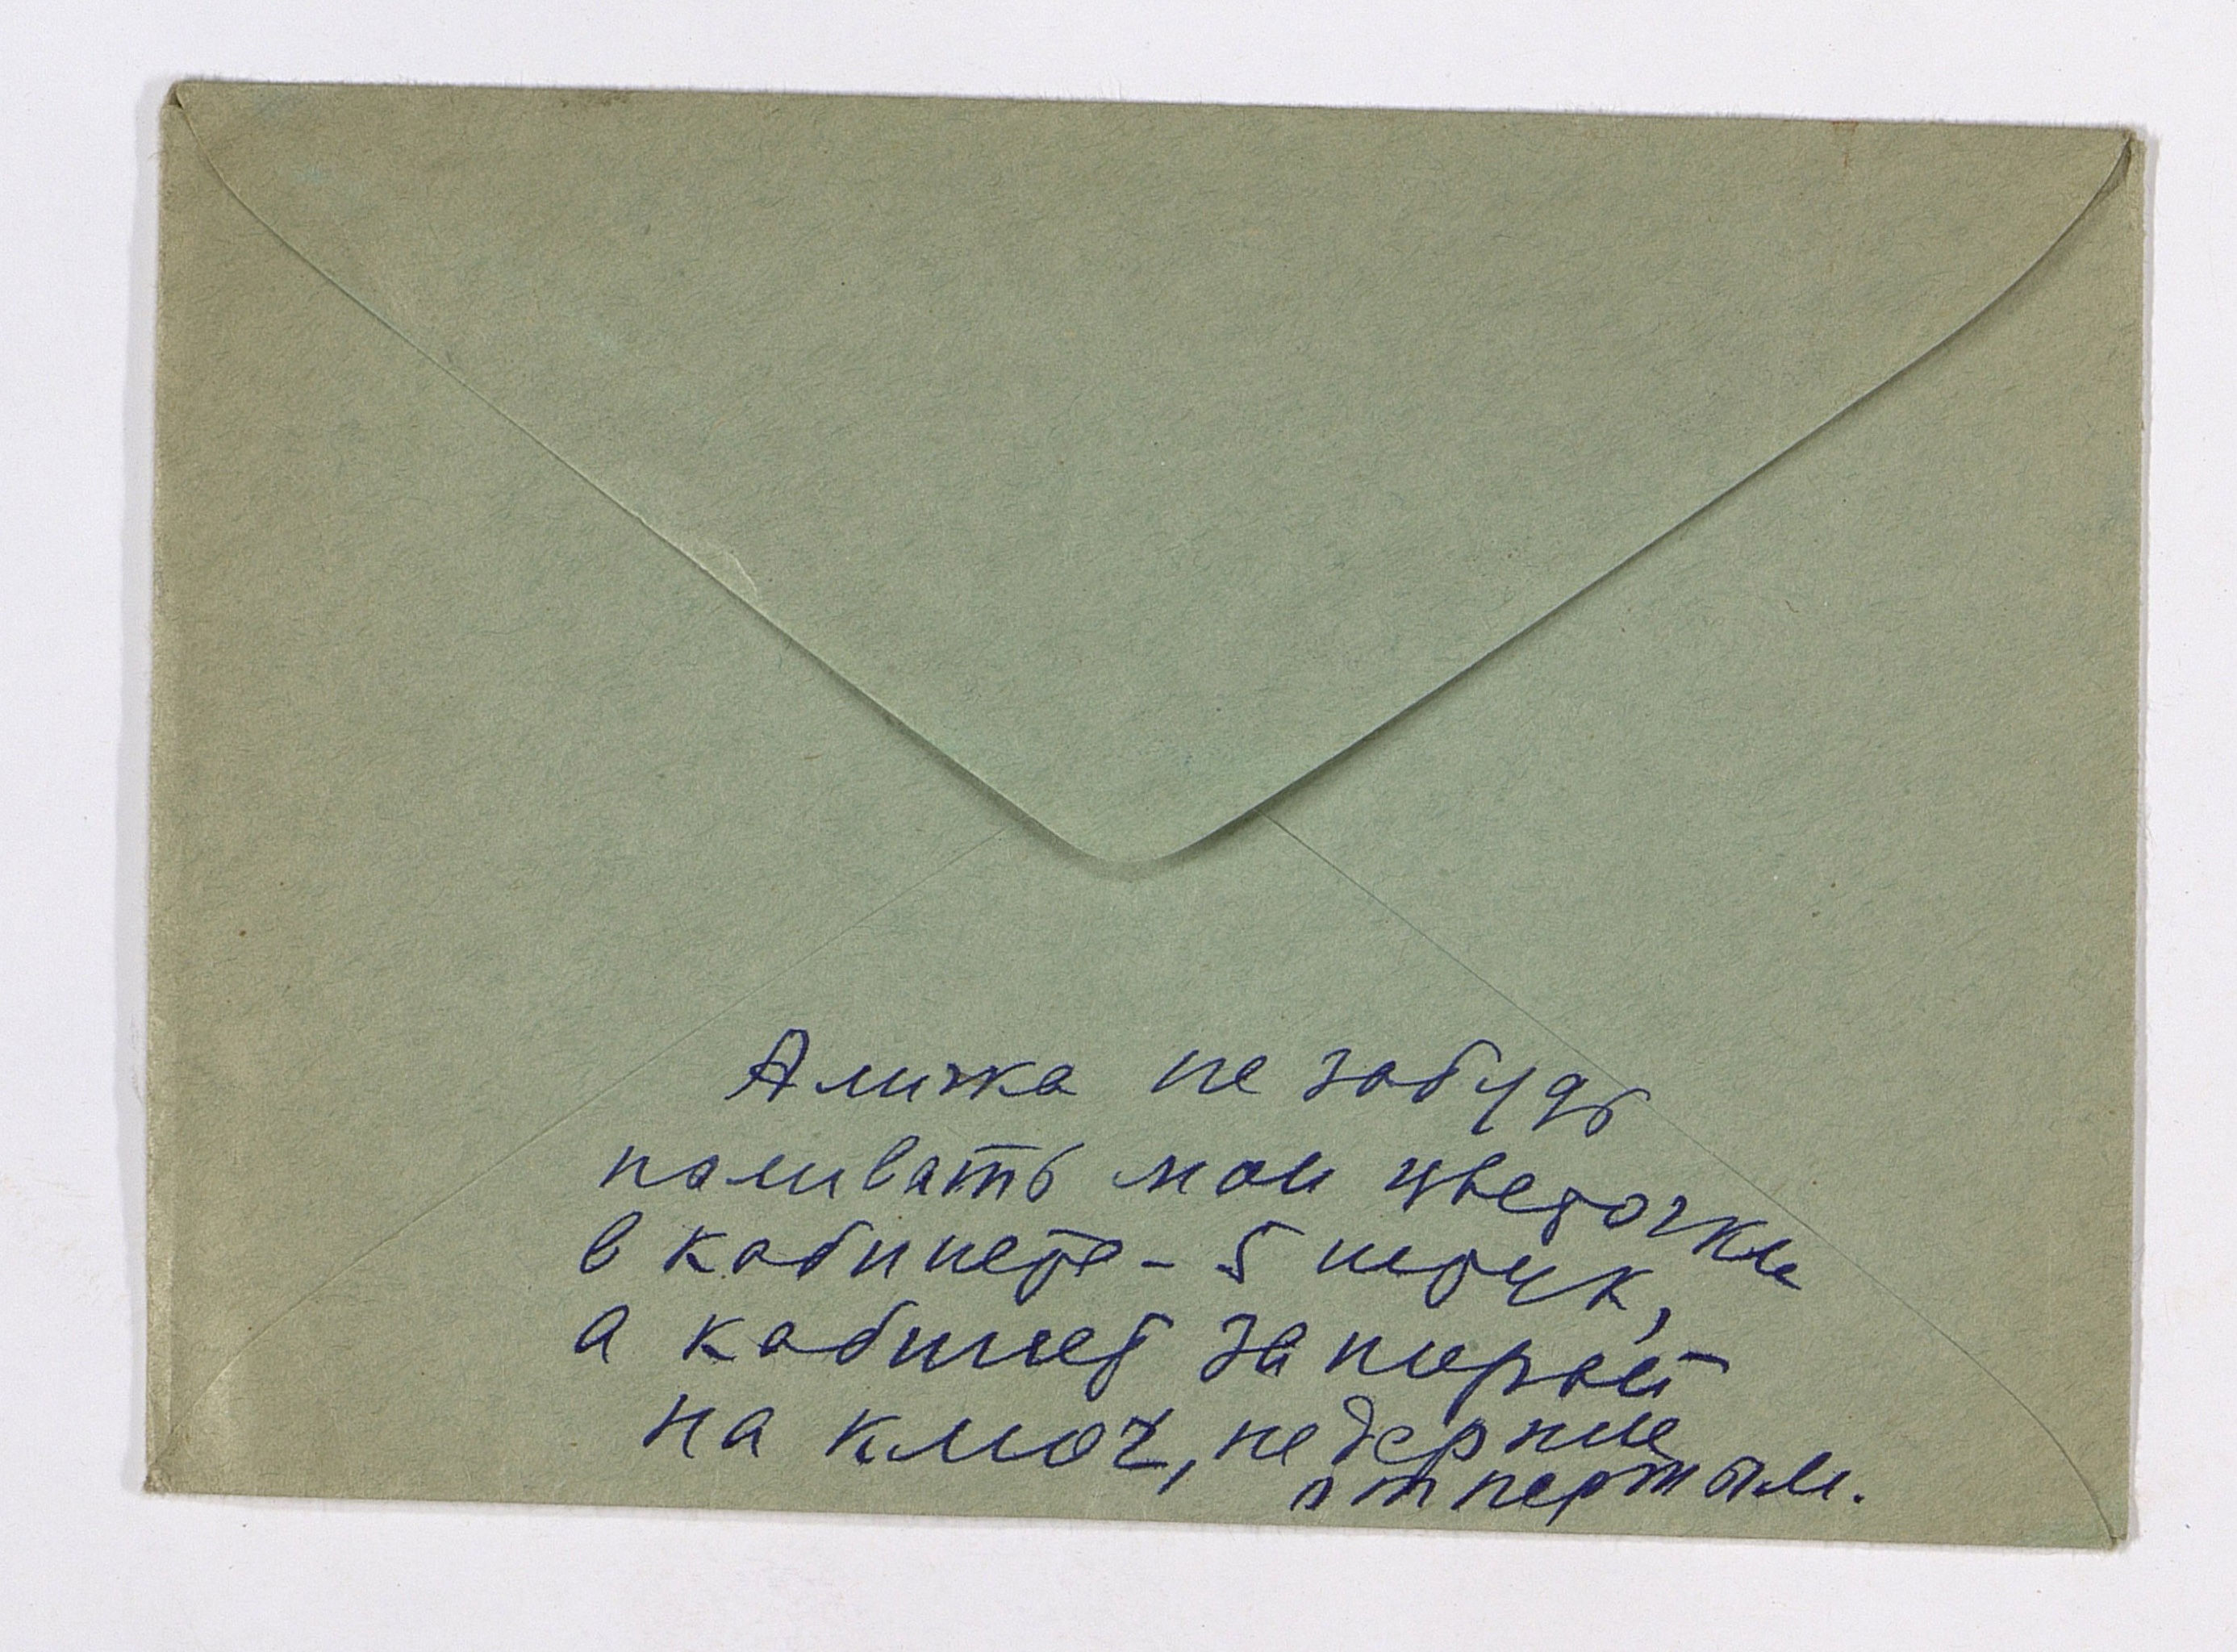 Алижа не забудь
поливать мои цветочки
в кабинете - 5 штук,
а кабинет запирай
на ключ, не держи
отпертым.